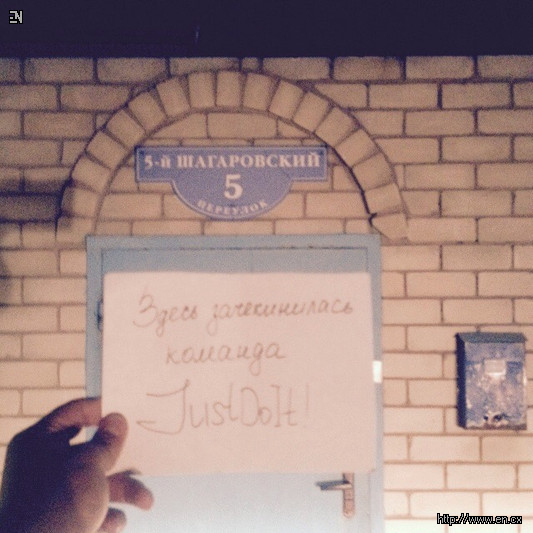 EN
5-й ШАГАРОВСКИЙ
5
ПЕРЕУЛОК
Здесь зачекинилась
команда
JustDoIt!
http://www.en.cx